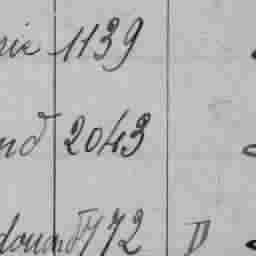 rie 1139
nd 2043
douard 772 D